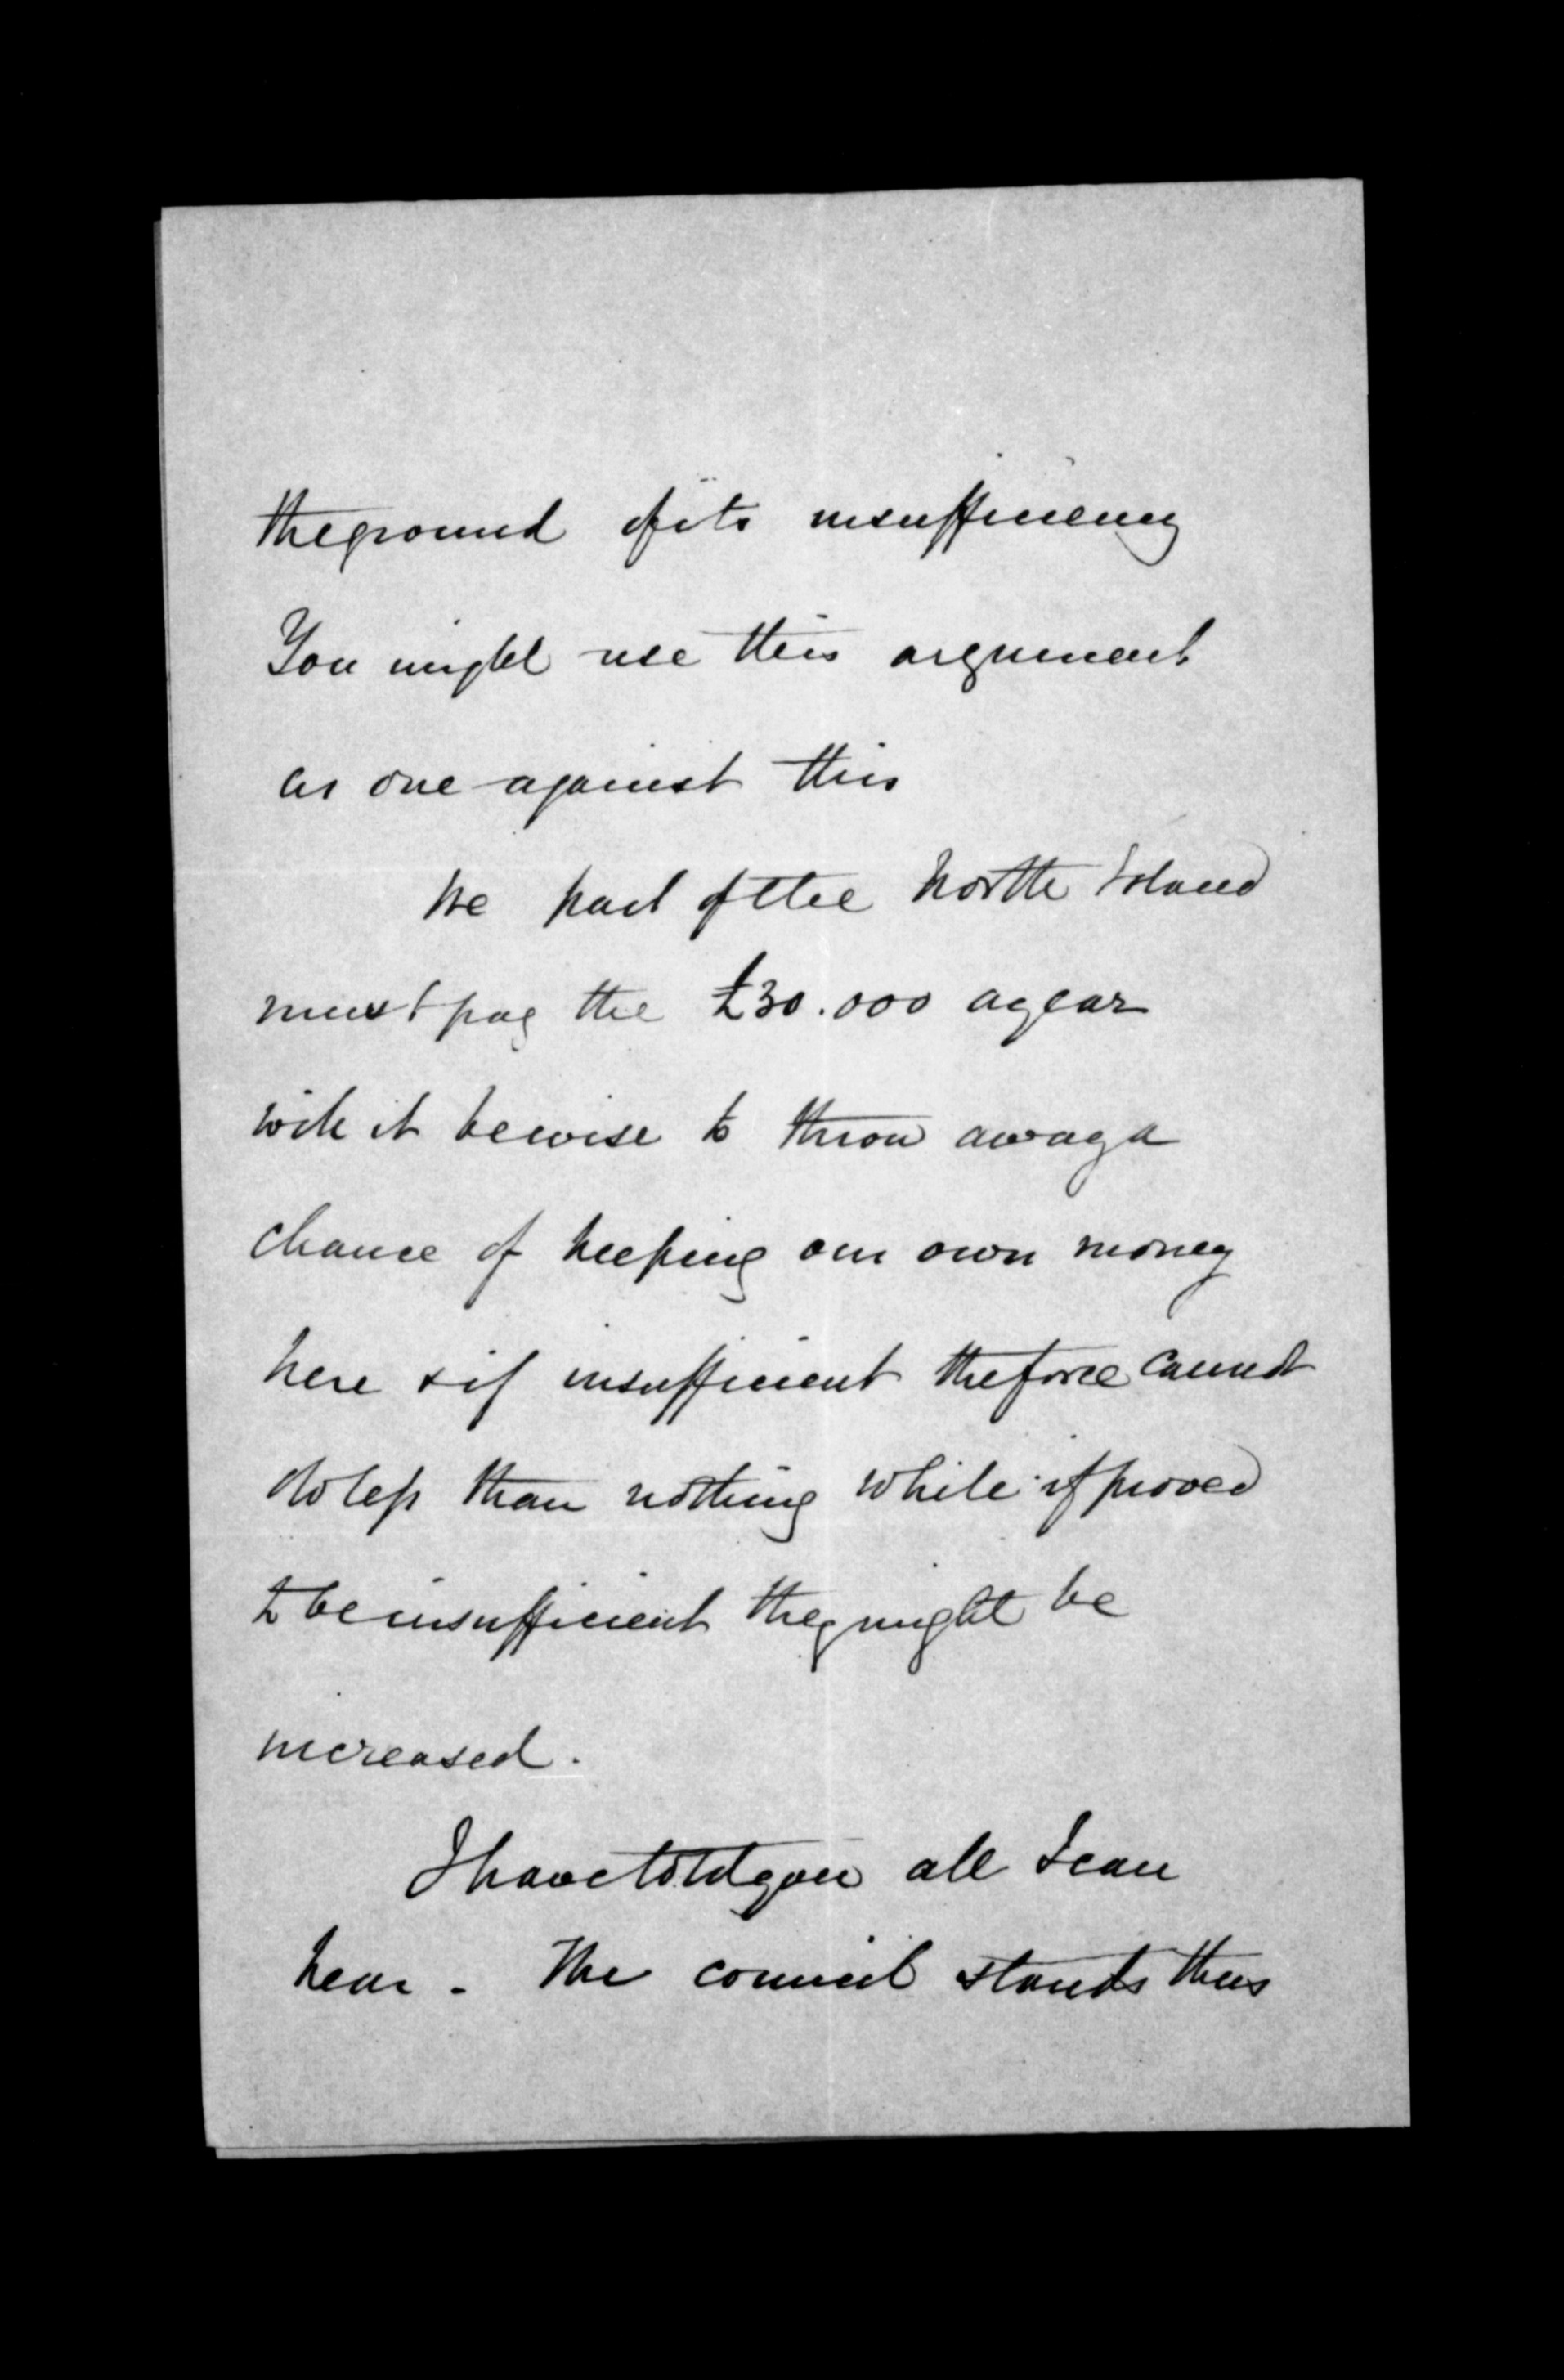 the ground of its insufficiency
You might use this argument
as one against this
We part of the North Island
must pay the £30.000 a year
will it be wise to throw away a
chance of keeping our own money
here & if insufficient the force cannot
do less than nothing while if proved
to be insufficient they might be
increased.
I have told you all I can
hear - The council stands thus